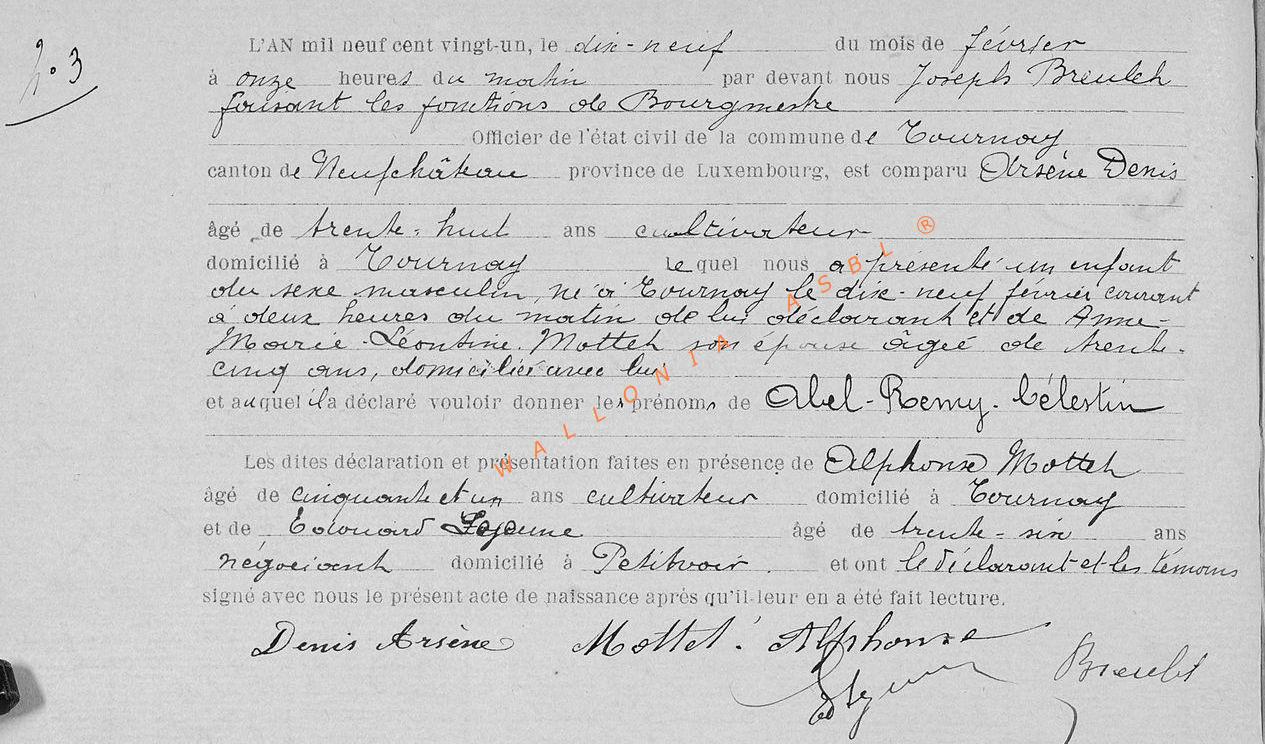 N° 3
L'AN mil neuf cent vingt-un, le dix-neuf du mois de février
à onze heures du matin par devant nous Joseph Breulet
faisant les fonctions de Bourgmestre
Officier de l'état civil de la commune de Tournay
canton de Neufchâteau province de Luxembourg, est comparu Arsène Denis
âgé de trente-huit ans cultivateur
domicilié à Tournay lequel nous a présenté un enfant
du sexe masculin, né à Tournay le dix-neuf février courant
à deux heures du matin de lui déclarant et de Anne-
Marie-Léontine Mottet son épouse âgée de trente-
cinq ans, domiciliée avec lui
et auquel il a déclaré vouloir donner les prénoms de Abel-Remy-Célestin
Les dites déclaration et présentation faites en présence de Alphonse Mottet
âgé de cinquante et un ans cultivateur domicilié à Tournay
et de Edouard Lejeune âgé de trente-six ans
négociant domicilié à Petitvoir. et ont le déclarant et les témoins
signé avec nous le présent acte de naissance après qu'il leur en a été fait lecture.
Denis Arsène Mottet Alphonse
Ed Lejeune Breulet
WALLONIA ASBL ®